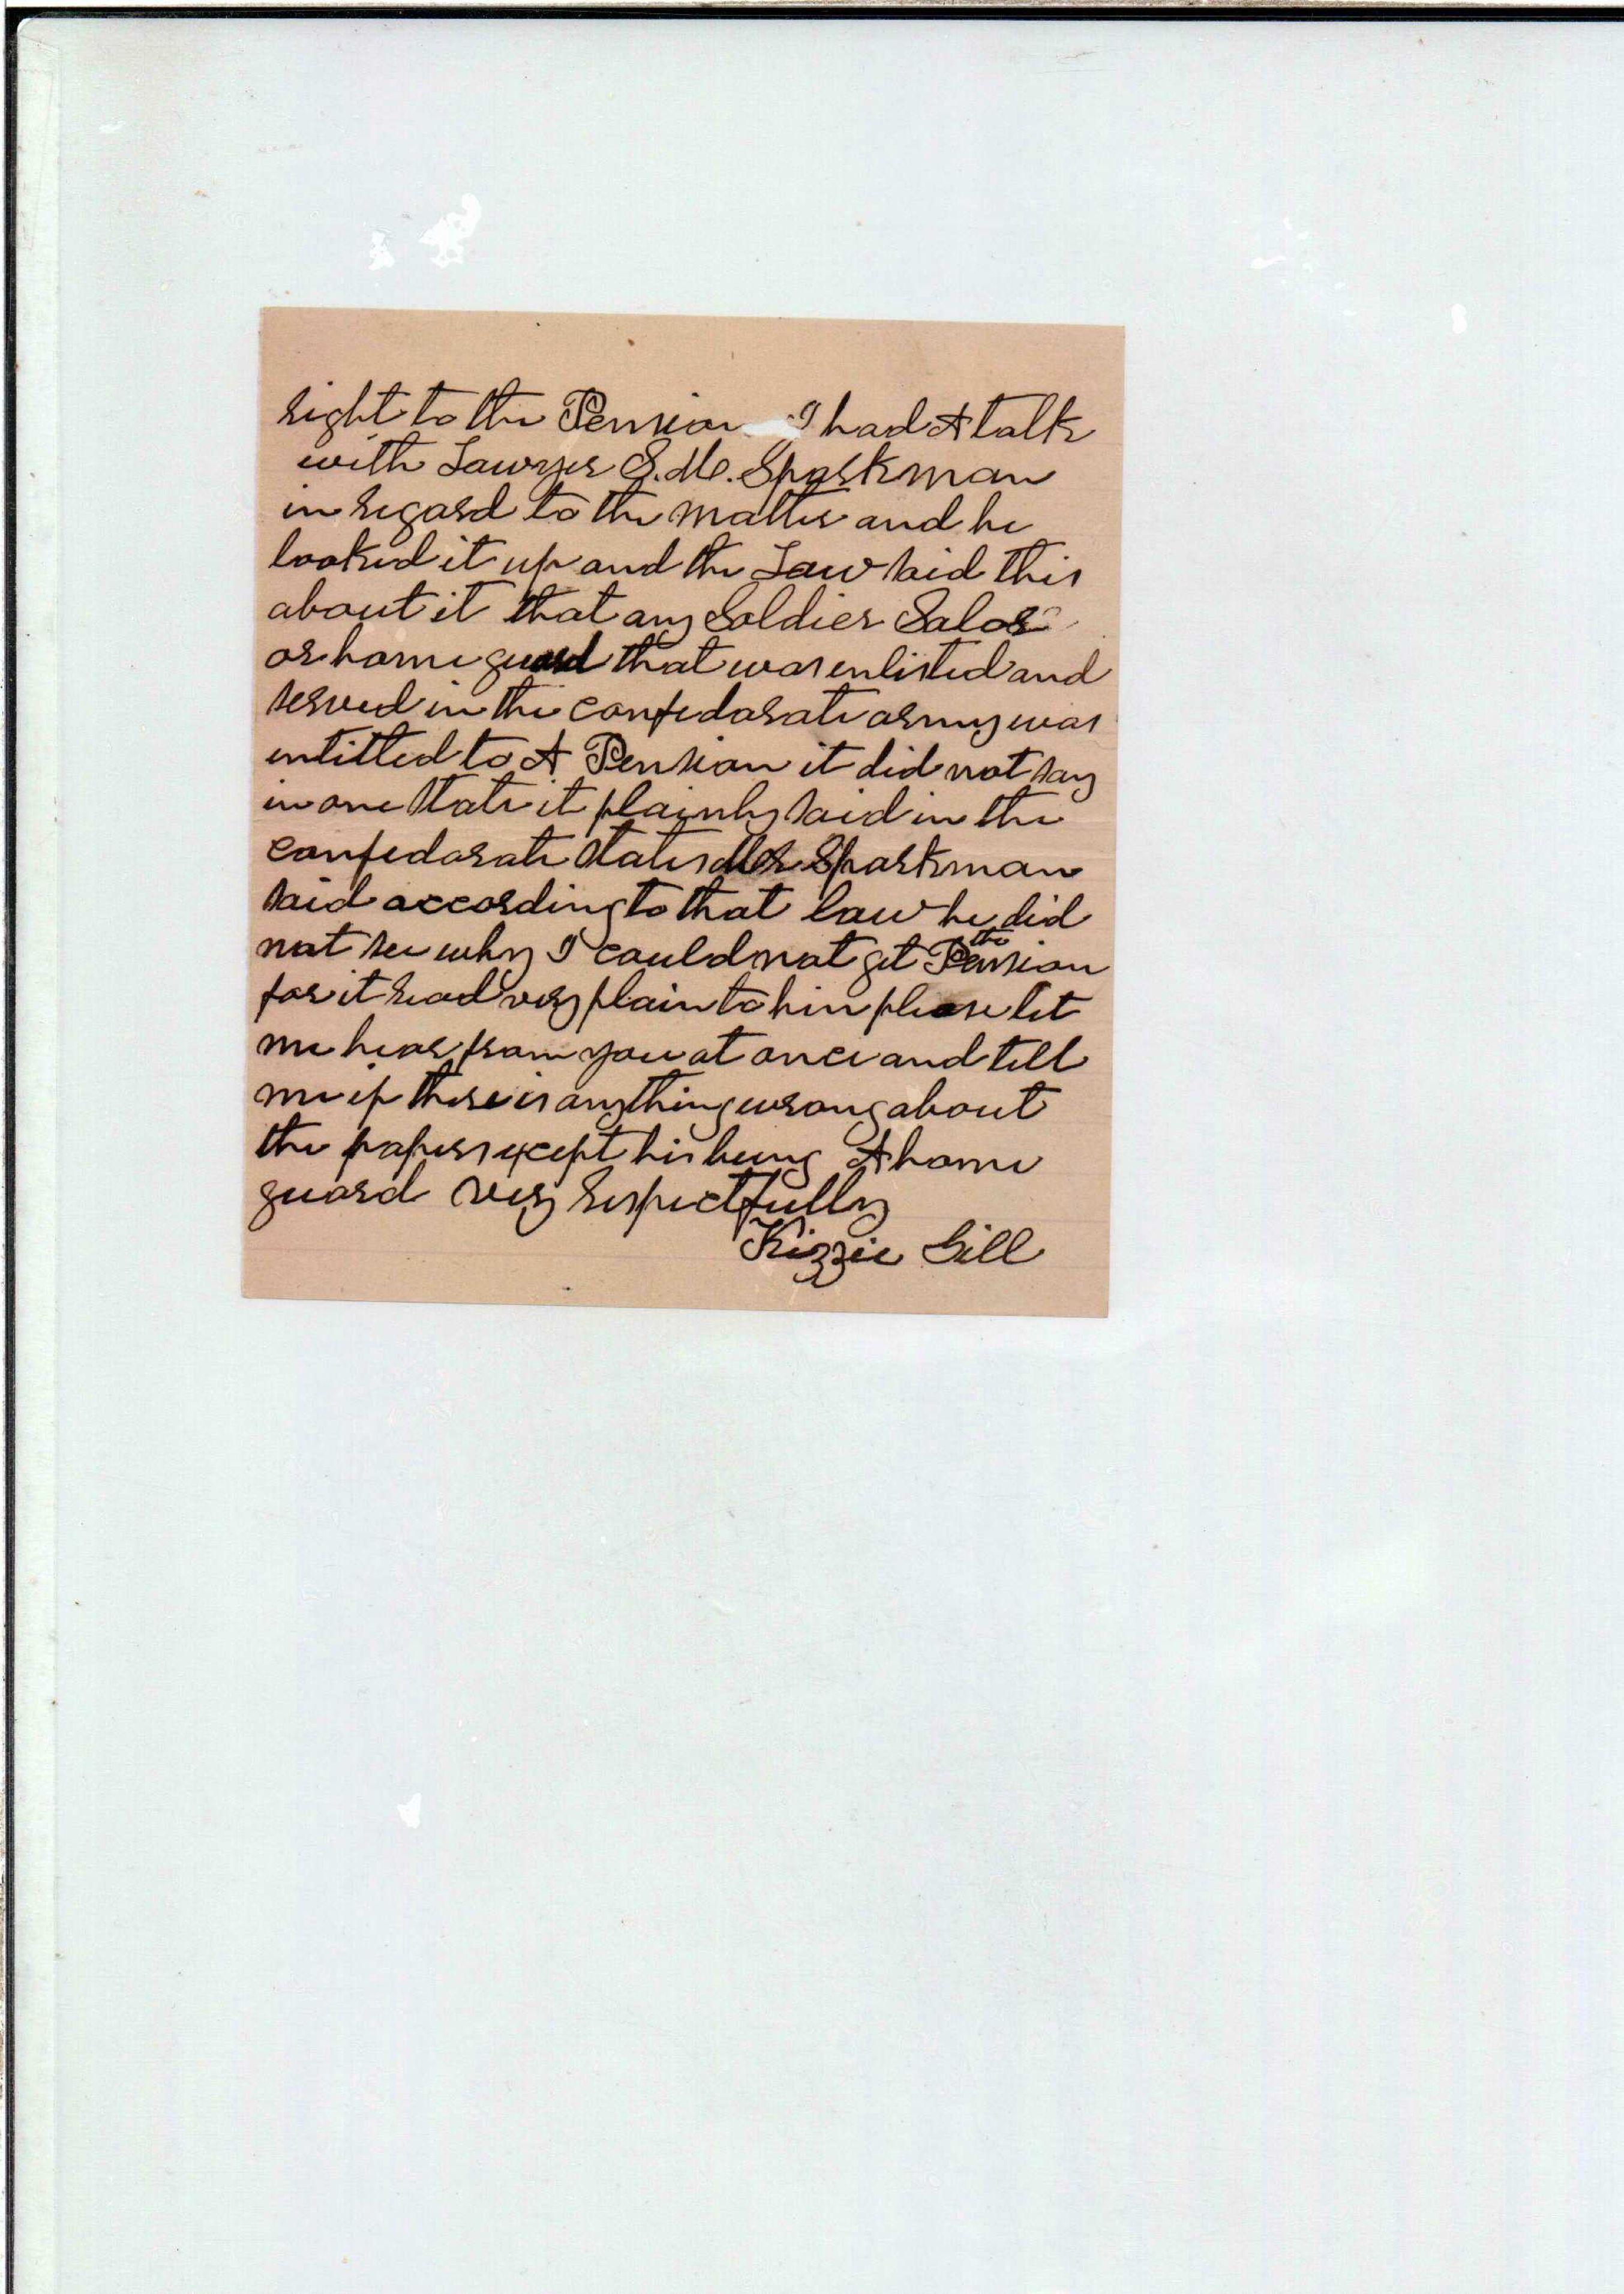 right to the Pension I had A talk
with Lawyer S. M. Sparkman
in regard to the matter and he
looked it up and the Law said this
about it that any Soldier Salor
or home guard that was enlisted and
served in the confedarate army was
entitled to A Pension it did not say
in one state it plainly said in the
confedarate states Mr Sparkman
said according to that law he did
not see why I could not get the Pension
for it read very plain to him please let
me hear from you at once and tell
me if there is anything wrong about
the papers except his being A home
guard very respectfully
Kizzie Gill